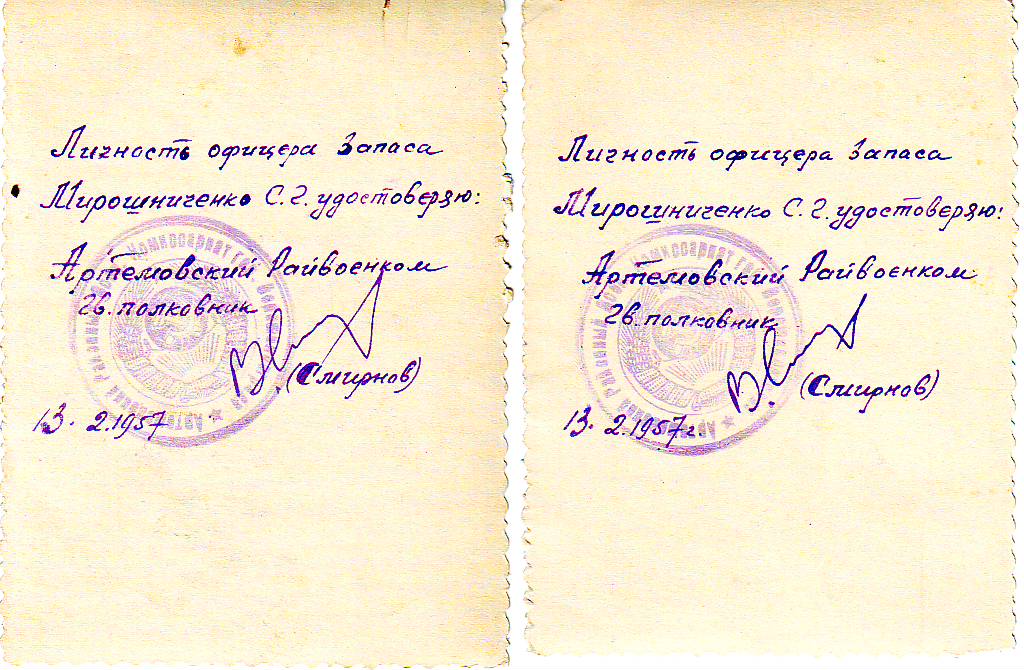 Личность офицера Запаса
Мирошниченко С.Г. удостоверяю:
Артемовский Райвоенком
гв. полковник
(Смирнов)
13. 2.1957
Личность офицера Запаса
Мирошниченко С.Г. удостоверяю:
Артемовский Райвоенком
гв. полковник
(Смирнов)
13. 2.1957 г